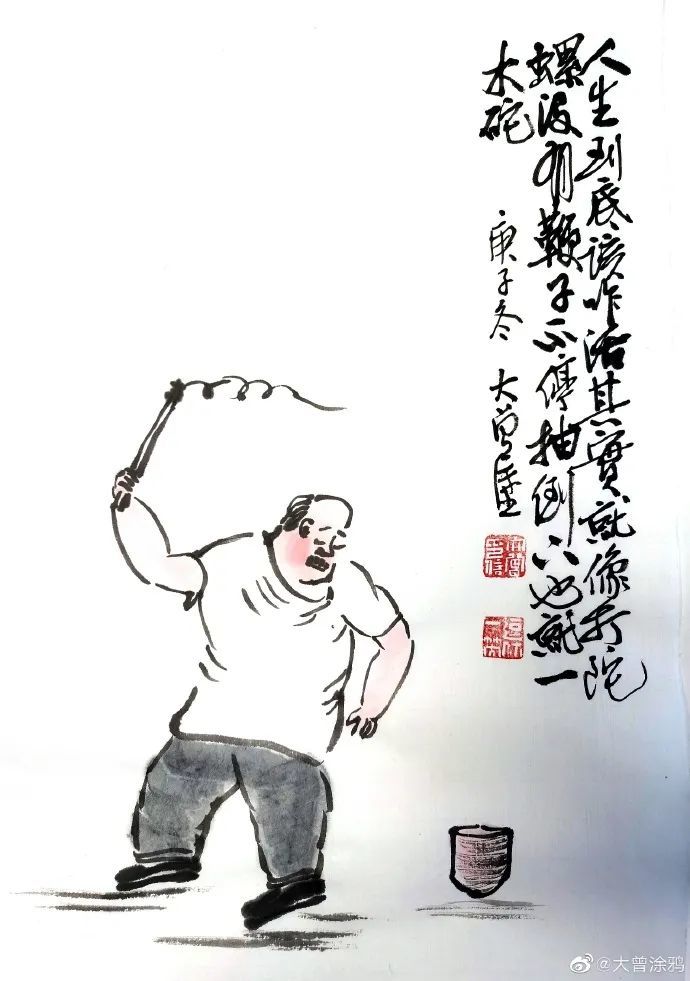 人生到底該咋活其實就像打陀
螺沒有鞭子不停抽倒下也就一
木砣 庚子冬 大曾
@大曾涂鸦